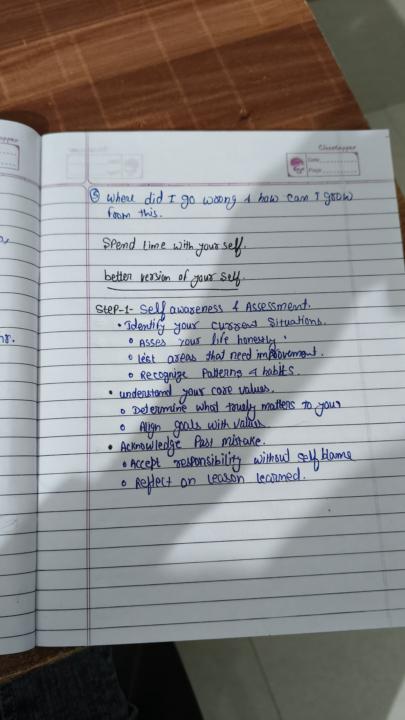 Classtopper
Date
Page
⑤ where did I go wrong & how can I grow
from this.
Spend time with your self.
better version of your self.
Step-1- Self awareness & Assessment.
• Identify your current situations.
o Asses your life honestly.
o list areas that need improvement.
o Recognize Patterns & habits.
• understand your core values.
o Determine what truly matters to your
o Align goals with values
• Acknowledge Past mistake.
o Accept responsibility without self blame
o Reflect on leason learned.